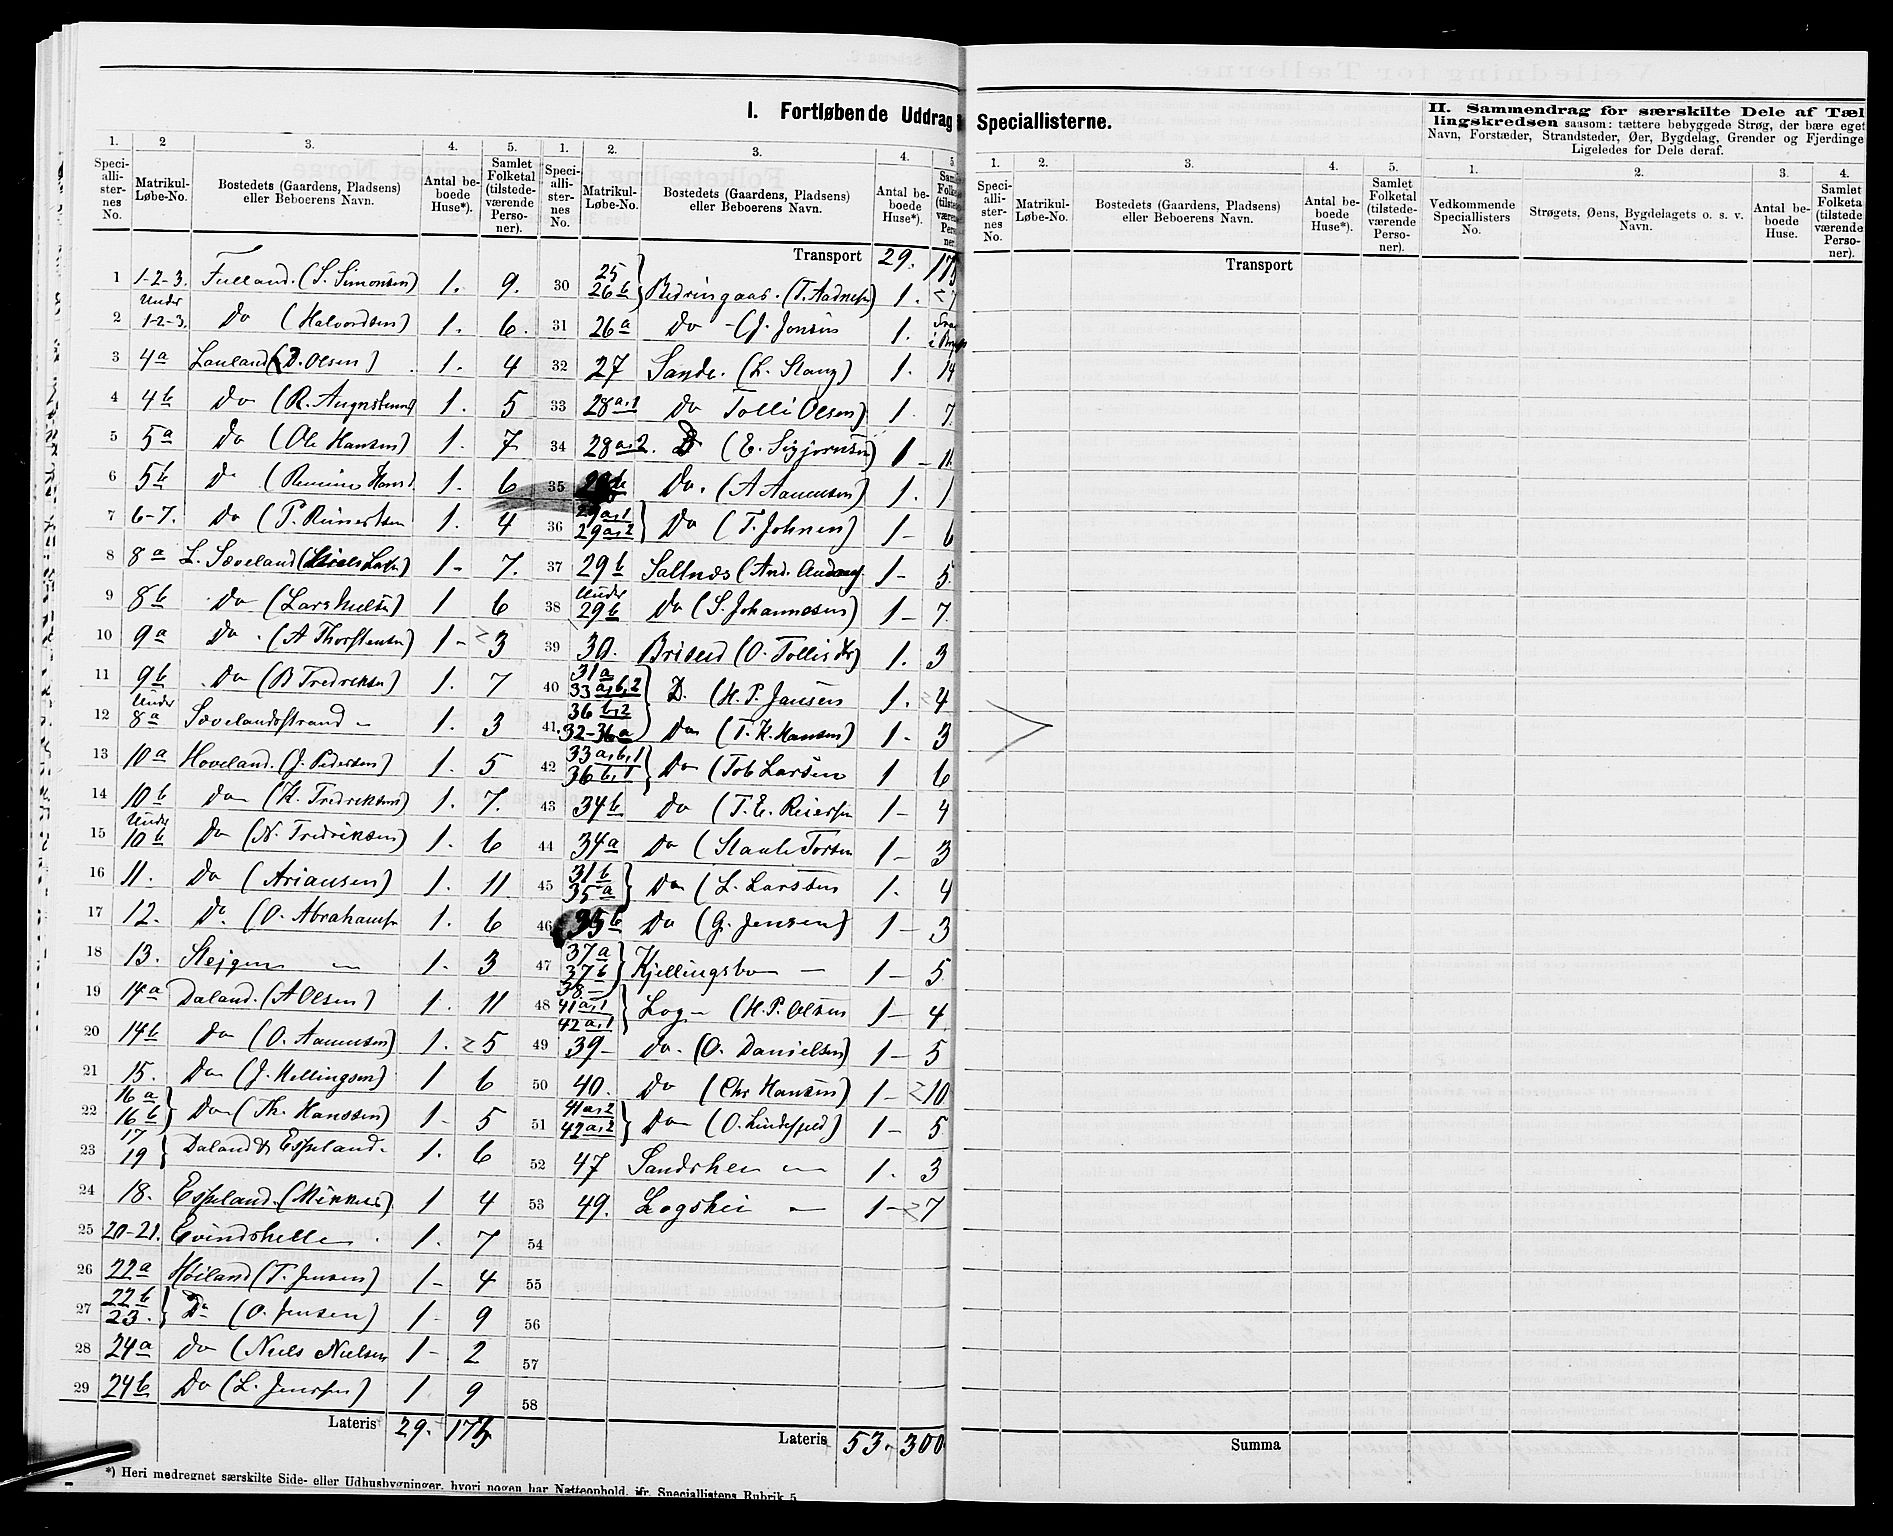 I. Fortløbende Uddrag
Speciallisterne.
II. Sammendrag for særskilte Dele af Tæl
lingskredsen saasom: tættere bebyggede Strøg, der bære eget
Navn, Forstæder, Strandsteder, Øer, Bygdelag, Grender og Fjerdinge
Ligeledes for Dele deraf.
1. 2 3. 4. 5. 1. 2. 3. 4. 5
Speci-alli-ster-nes No. Matrikul-Løbe-No. Bostedets (Gaardens, Pladsens) eller Beboerens Navn. Antal be-boede Huse*). Samlet Folketal (tilstede-værende Perso-ner).
Speci-alli-ster-nes No. Matrikul-Løbe-No. Bostedets (Gaardens, Pladsens) eller Beboerens Navn. Antal be-boede Huse*).
1 1-2-3. Fulland. (S. Simonsen) 1. 9.
2 Under 1-2-3. Do (Halvordsen) 1. 6.
3 4a Lauland (D. Olsen) 1. 4
4 4b Do (R. 1. 5
5 5a Do (Ole Hansen) 1. 7
6 5b Do 1. 6
7 6-7. Do (P. Reinertsen 1. 4
8 8a L. Sæveland 1- 7.
9 8b Do (Lars Nielsen) 1 6
10 9a Do. (A Thorstensen) 1- 3
11 9b Do (B Fredriksen) 1. 7
12 Under 8a Sævelandsstrand - 1. 3
13 10a Hoveland. (J. Pedersen) 1. 5
14 10b Do (K. Fredriksen) 1. 7.
15 Under 10b Do (N. Fredriksen) 1. 6
16 11. Do (Ariansen) 1. 11
17 12. Do. (O. Abrahamsen 1. 6
18 13. 1. 3
19 14a Daland. (A Olsen) 1. 11
20 14b Do (O. Aanensen) 1. 5
21 15. Do (J. Kellingsen) 1 6
22 16a 16b Do (Th. Hanssen) 1- 5
23 17 19 Daland & Espeland. 1. 6
24 18. Espeland. 1 4
25 20-21. Evindshelle 1. 7
26 22a Høiland (T. Jensen) 1- 4
27 22b 23. Do (O. Jensen) 1- 9
28 24a Do (Niels Nielsen 1- 2
29 24b Do (L. Jenssen) 1 9
Lateris 29. 175
Transport 29. 175
30 25 26b Bedringaas. (T. Aadnesen) 1.
31 26a Do - (J. Jensen 1.
32 27 Sande. (L. Stang) 1. 14
33 28a,1 Do Tolli Olsen) 1. 7.
34 28a,2. Do (E. Sigjornsen) 1- 11
35 28b Do. (A Aanensen) 1. 1
36 29a,1 29a,2 Do (T. Johnsen) 1- 6
37 29b Saltnes 1- 5.
38 Under 29b Do (S. Johannesen) 1- 7.
39 30. Briseid 1. 3
40 31a 33a,b,2 36b,2 D. (H. P. Jansen 1. 4
41. 32-36a Do (T. K. Hansen) 1- 3
42 33a,b,1 36b,1 Do (Tob Larsen 1 6
43 34b Do (T. E. Reiersen 1- 4
44 34a Do 1- 3
45 31b 35a Do (L. Larssen 1. 4
46 35b Do (G. Jensen) 1- 3
47 37a 37b Kjellingsbo - 1- 5
48 38- 41a,1 42a,1 Log - (H. P. Olsen 1- 4
49 39- do. (O. Danielsen) 1- 5
50 40. Do (Chr Hansen) 1- 10
51 41a,2 42a,2 Do (O. Lindefjeld) 1- 5
52 47 Sandshei - 1. 3
53 49. Logshei - 1- 7
54
55
56
57
58
Lateris 53. 300
*) Heri medregnet særskilte Side- eller Udhusbygninger, hvori nogen har Natteophold, jfr. Speciallistens Rubrik 5.
1. 2. 3. 4. 5. 1. 2. 3. 4.
Speci-alli-ster-nes No. Matrikul-Løbe-No. Bostedets (Gaardens, Pladsens) eller Beboerens Navn. Antal be-boede Huse*). Samlet Folketal (tilstede-værende Perso-ner).
Vedkommende Speciallisters No. Strøgets, Øens, Bygdelagets o. s. v. Navn. Antal be-boede Huse. Samlet Folketa (tilstede værende Perso-ner).
Transport
Summa